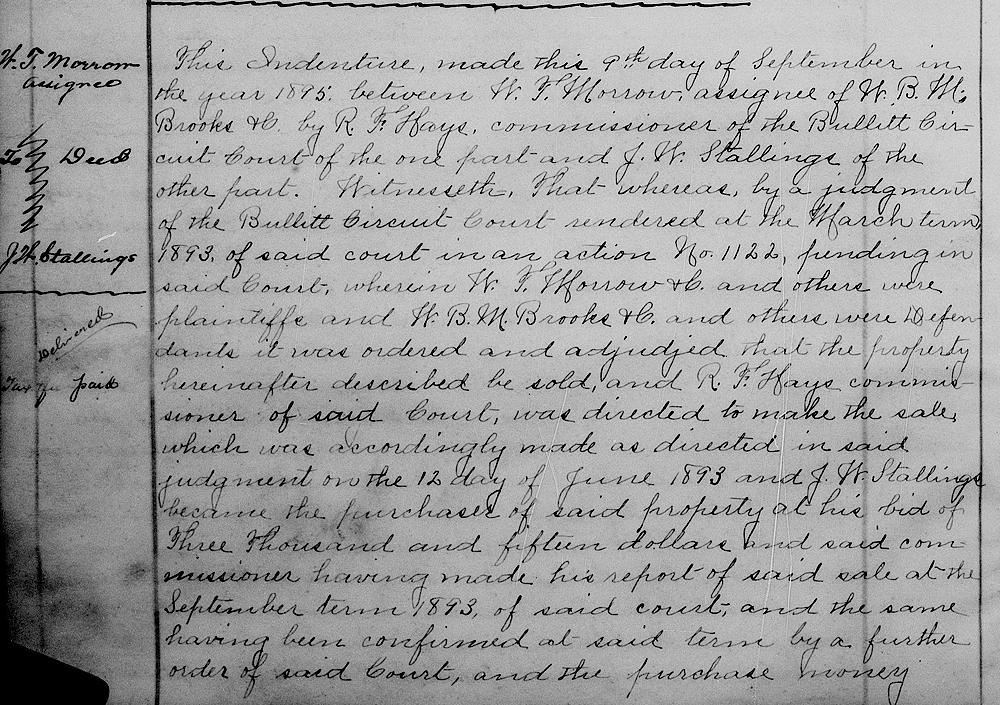 W. F. Morrow
assignee
To Deed
J. W. Stallings
Delivered
Tax paid
This Indenture, made this 9th day of September in
the year 1895. between W. F. Morrow, assignee of W. B. M.
Brooks &C. by R. F. Hays, commissioner of the Bullitt Cir-
cuit Court of the one part and J. W. Stallings of the
other part. Witnesseth, That whereas, by a judgment
of the Bullitt Circuit Court rendered at the March term,
1893, of said court in an action No. 1122, pending in
said Court, wherein W. F. Morrow &C. and others were
plaintiffs and W. B. M. Brooks &C. and others were Defen-
dants it was ordered and adjudjed that the property
hereinafter described be sold, and R. F. Hays commis-
sioner of said Court, was directed to make the sale,
which was accordingly made as directed in said
judgment on the 12 day of June 1893 and J. W. Stallings
became the purchaser of said property at his bid of
Three Thousand and fifteen dollars and said com-
missioner having made his report of said sale at the
September term 1893, of said court, and the same
having been confirmed at said term by a further
order of said Court, and the purchase money